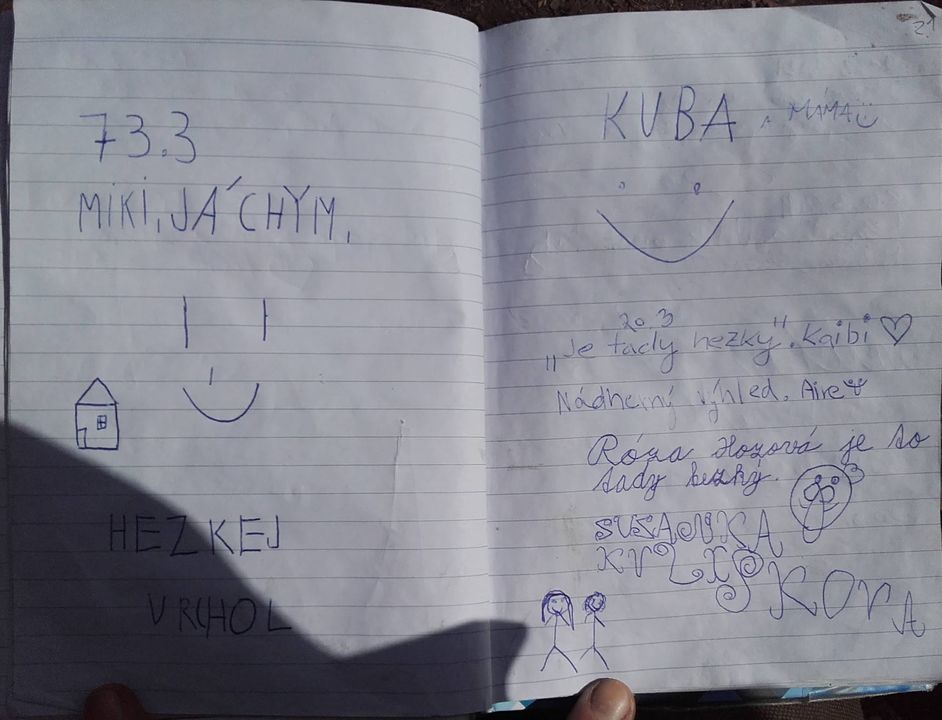 73.3
MIKI, JÁCHYM,
HEZKEJ
VRCHOL
21
KUBA A MÁMA
20.3
„Je tady hezky". Kaibi ♡
Nádherný výhled. Aire
Róza Hozová je to
tady hezký.
KOVA